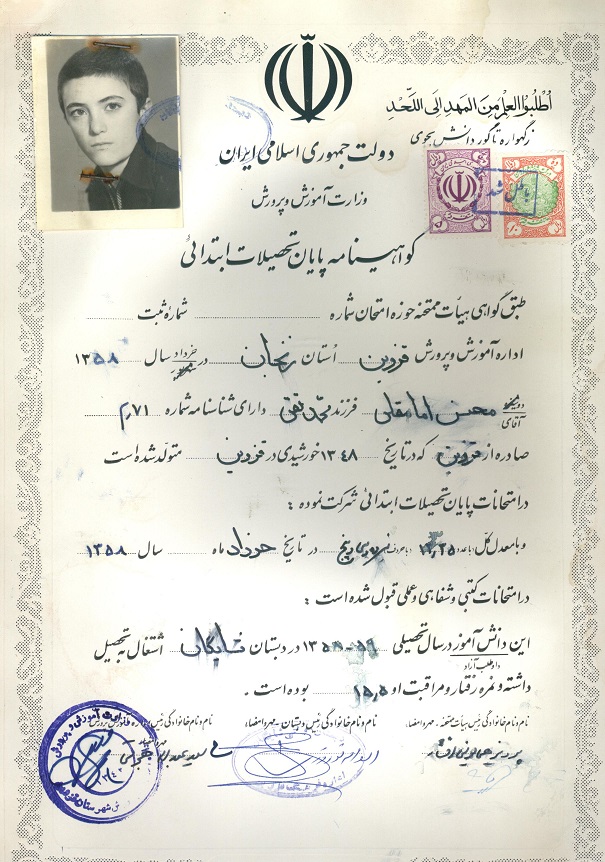 اُطْلُبُوا العِلْمَ مِنَ المَهدِ اِلَی اللَّحَد
زگهواره تا گور دانش بجوی
دولت جمهوری اسلامی ایران
وزارت آموزش و پرورش
باطل شد
گواهینامه پایان تحصیلات ابتدائی
طبق گواهی هیأت ممتحنه حوزه امتحان شماره شمارهٔ ثبت
اداره آموزش و پرورش قزوین اُستان زنجان در خرداد سال ۱۳۵۸
دوشیزه
آقای محسن امامقلی فرزند محمد تقی دارای شناسنامه شماره ۲۰۷۱
صادره از قزوین که در تاریخ ۱۳۴۸ خورشیدی در قزوین متولد شده است
در امتحانات پایان تحصیلات ابتدائی شرکت نموده :
و با معدل کل (با عدد) (با حروف) در تاریخ خرداد ماه سال ۱۳۵۸
در امتحانات کتبی و شفاهی و عملی قبول شده است :
این دانش آموز در سال تحصیلی ۱۳۵۸-۵۹ در دبستان شایگان اشتغال به تحصیل
داوطلب آزاد
داشته و نمره رفتار و مراقبت او ۱۵٫۵ بوده است .
نام و نام خانوادگی رئیس هیأت ممتحنه - مهر و امضاء
نام و نام خانوادگی رئیس دبستان - مهر و امضاء
نام و نام خانوادگی رئیس اداره آموزش و پرورش
مهر و امضاء